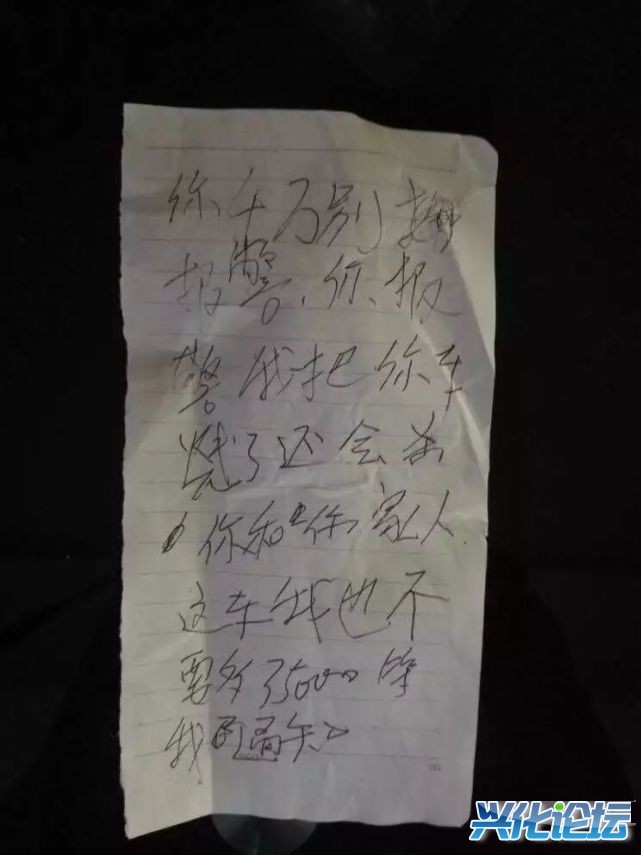 你千万别
报警、你报
警我把你车
烧了还会杀
你和你家人
这车我也不
要多了5000等
我的通知
兴化论坛